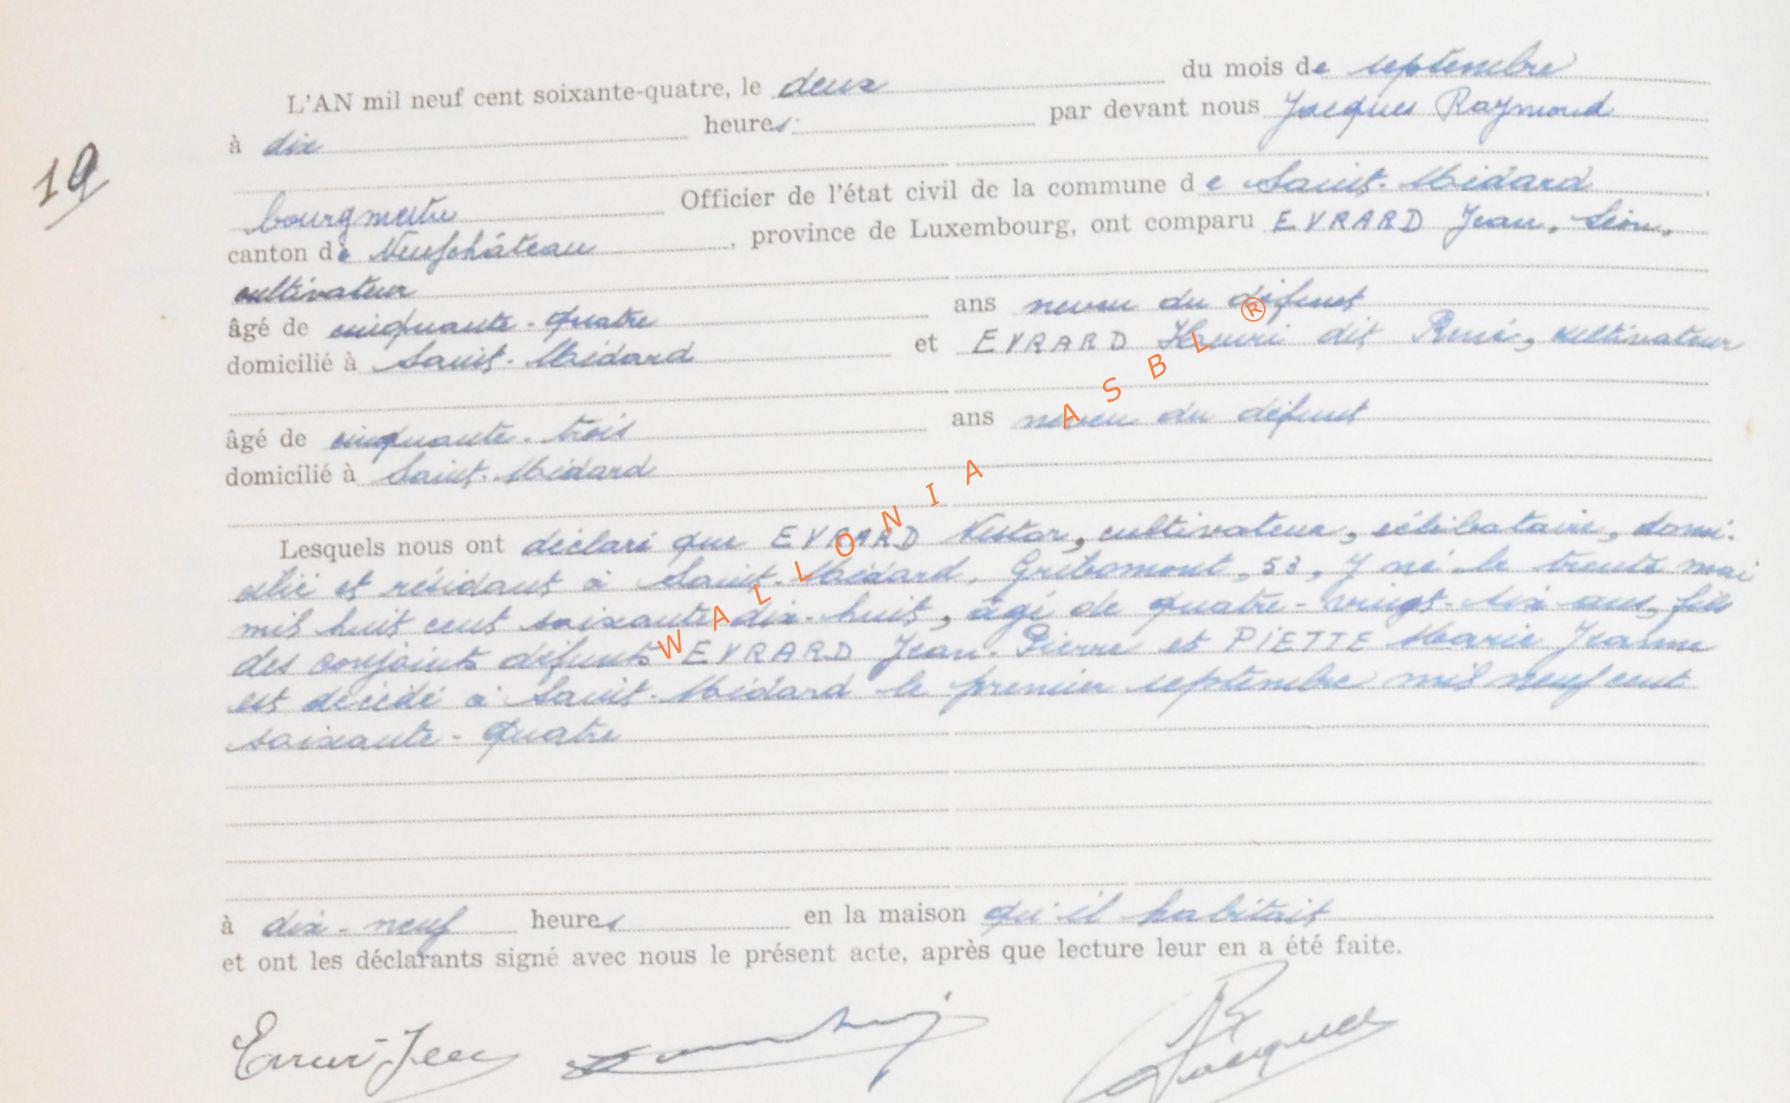 L'AN mil neuf cent soixante-quatre, le deux du mois de septembre
à dix heures par devant nous Jacques Raymond
19
bourgmestre Officier de l'état civil de la commune de Saint-Médard
canton de Neufchâteau, province de Luxembourg, ont comparu EVRARD Jean, Léon,
cultivateur
âgé de cinquante-quatre ans neveu du défunt
domicilié à Saint-Médard et EVRARD Henri dit René, cultivateur
âgé de cinquante-trois ans neveu du défunt
domicilié à Saint-Médard
Lesquels nous ont déclaré que EVRARD Nestor, cultivateur, célibataire, domi-
cilié et résidant à Saint-Médard, Gribomont, 53, y né le trente mai
mil huit cent soixante-dix-huit, âgé de quatre-vingt-six ans, fils
des conjoints défunts EVRARD Jean-Pierre et PIETTE Marie Jeanne
est décédé à Saint-Médard le premier septembre mil neuf cent
soixante-quatre
à dix-neuf heures en la maison qu'il habitait
et ont les déclarants signé avec nous le présent acte, après que lecture leur en a été faite.
Evrard Jean
R Jacques
WALLONIA ASBL ®